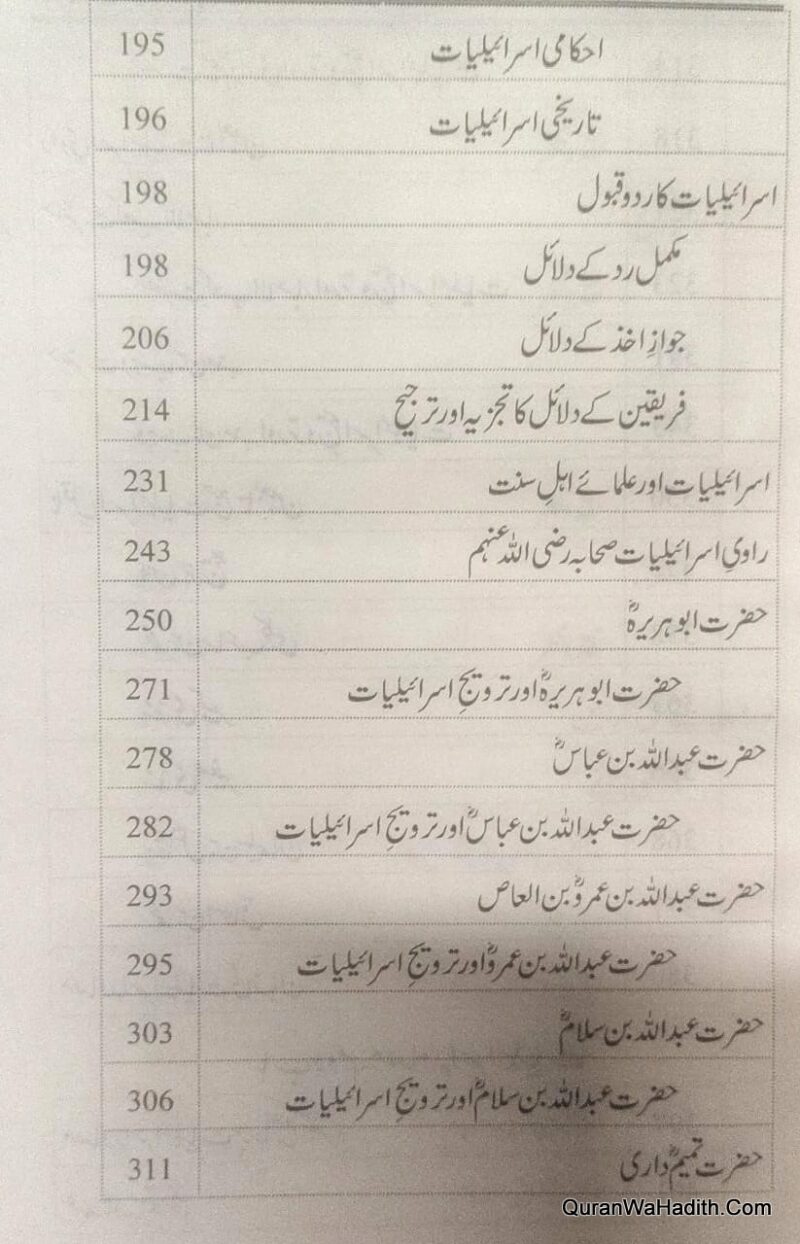 احکامی اسرائیلیات 195
تاریخی اسرائیلیات 196
اسرائیلیات کا رد و قبول 198
مکمل رد کے دلائل 198
جوازِ اخذ کے دلائل 206
فریقین کے دلائل کا تجزیہ اور ترجیح 214
اسرائیلیات اور علمائے اہلِ سنت 231
راویِ اسرائیلیات صحابہ رضی اللہ عنہم 243
حضرت ابو ہریرہؓ 250
حضرت ابو ہریرہؓ اور ترویجِ اسرائیلیات 271
حضرت عبداللہ بن عباسؓ 278
حضرت عبداللہ بن عباسؓ اور ترویجِ اسرائیلیات 282
حضرت عبداللہ بن عمروؓ بن العاص 293
حضرت عبداللہ بن عمروؓ اور ترویجِ اسرائیلیات 295
حضرت عبداللہ بن سلامؓ 303
حضرت عبداللہ بن سلامؓ اور ترویجِ اسرائیلیات 306
حضرت تمیمؓ داری 311
QuranWaHadith.Com